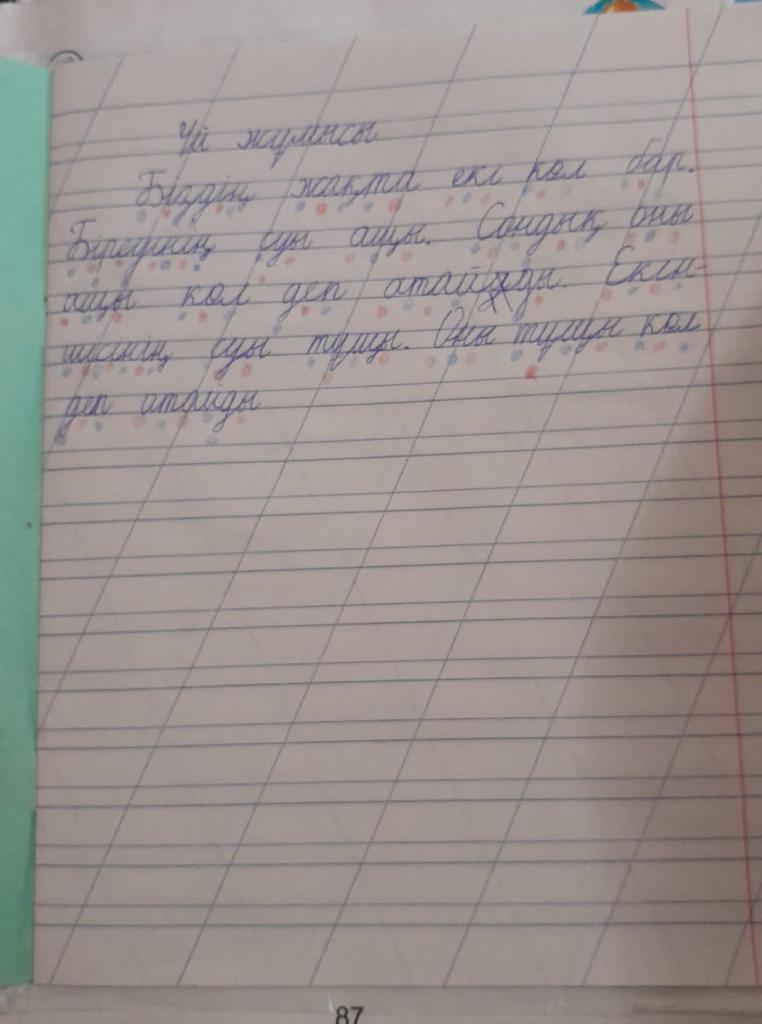 Үй жұмысы
Біздің жақта екі көл бар.
Біреуінің суы ащы. Сондық оны
ащы көл деп атайды. Екін-
шісінің суы тұщы. Оны тұщы көл
деп атайды
87